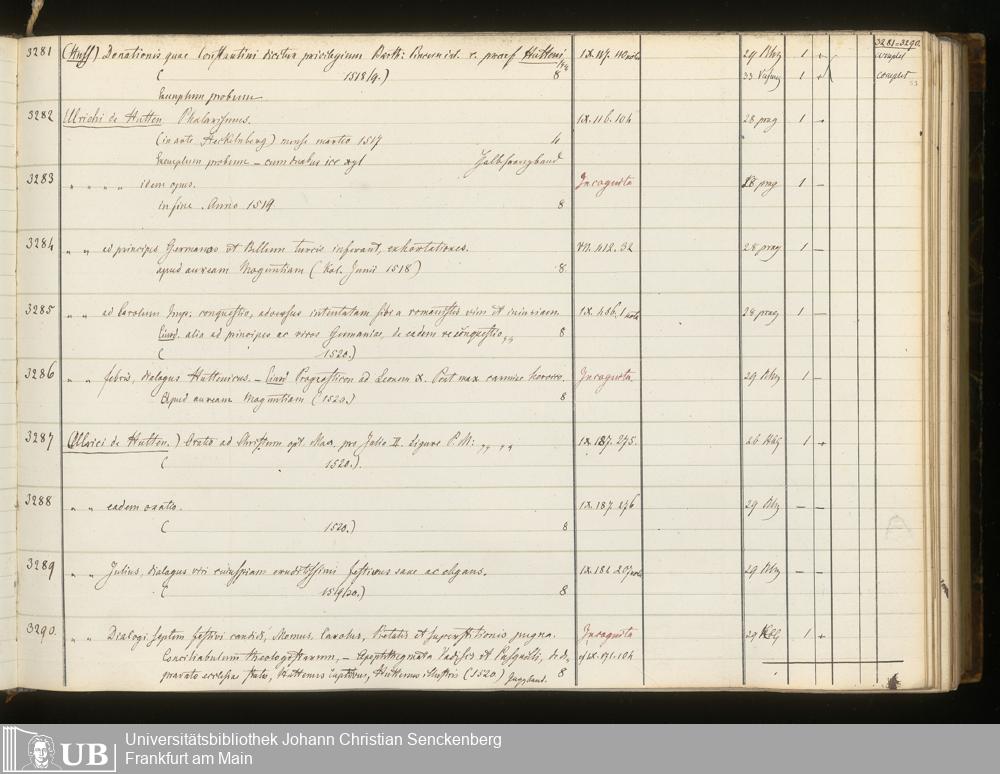 3281-3290
3281 (Huff) Donationis quae Constantini dicitur privilegium Barth: c. praef Hutteni IX. 117. 110 nota 29 1 complet
( 1518/9.) 8 33 1 complet
Exemplum probum
3282 Ulrichi de Hutten Phalarismus. IX. 116. 104 28 prag 1
(in arte Steckelnberg) mense martio 1517 4
Exemplum probum – cum duabus icc xyl Halbfranzband
3283 " " " " idem opus. Incognita 28 prag 1 –
in fine . Anno 1519. 8
3284 " " ad principes Germanos ut Bellum turcis inferant, exhortationes. VII. 412. 32 28 prag 1 –
apud auream Moguntiam (Kal. Junii 1518) 8.
3285 " " ad Carolum Imp. conquestio, adversus intentatam sibi a romanistis vim et iniuriam. IX. 456. 1 nota 28 prag 1 –
Eiusd. alia ad principes ac viros Germaniae, de eadem re conquestio „ 8
( 1520.)
3286 " " febris, dialogus Huttenicus. – Eiusd Prognosticon ad Leonem X. Pont max carmine heroico. Incognita. 29 1 –
Apud auream Moguntiam (1520.) 8
3287 (Ulrici de Hutten.) Oratio ad Christum opt. Max. pro Julio II. Ligure P. M: „ „ „ IX. 187. 275. 26 1
( 1520.).
3288 " " eadem oratio. IX. 187. 276 29 – –
( 1520.) 8
3289 " " Julius, dialogus viri cuiuspiam eruditissimi festivus sane ac elegans. IX. 182. 207 nota 29 – –
( 1519/20.) 8
3290. " " Dialogi septem festivi candidi, Momus. Carolus, Pietatis et superstitionis pugna. Incognita 29 1
Conciliabulum theologistarum, – Apophthegmata Vadisci et Pasquilli, de de„ cf IX. 171. 104
pravato ecclesiae statu, Huttenus captivus, Huttenus illustris (1520.) 8
UB
Universitätsbibliothek Johann Christian Senckenberg
Frankfurt am Main